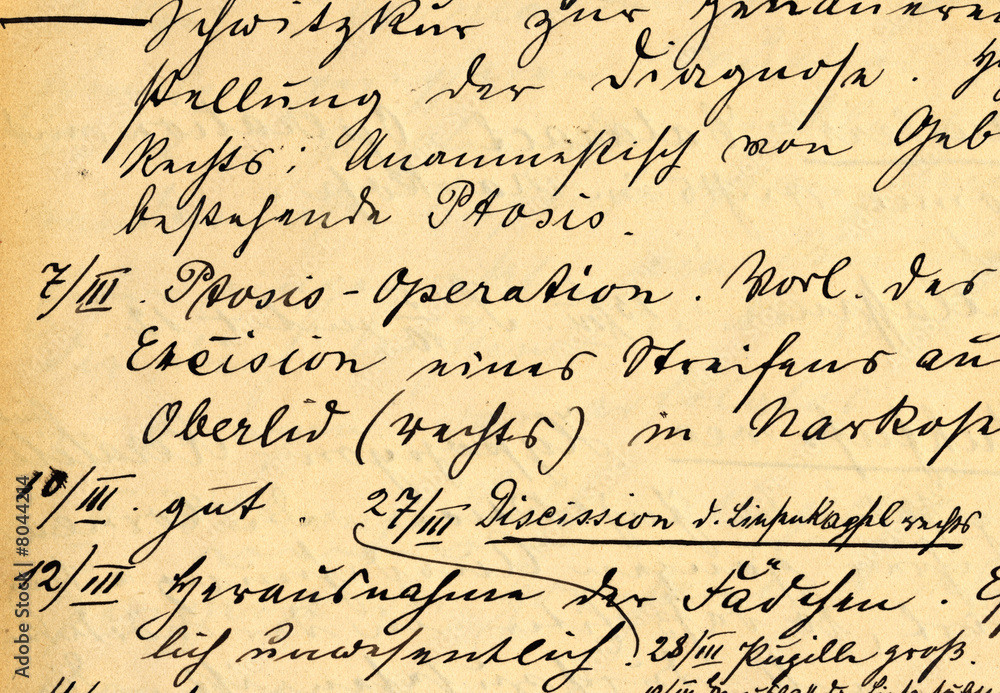 Schwitzkur zur genaueren
stellung der Diagnose.
Rechts: Anamnestisch von Geb
bestehende Ptosis.
7/III. Ptosis-Operation. Vorl. des
Excision eines Streifens au
Oberlid (rechts) in Narkose
10/III. gut. 27/III Discission d. Linsenkapsel rechts
12/III Herausnahme der Fädchen.
lich unwesentlich. 28/III Pupille groß.
Adobe Stock | #8044214